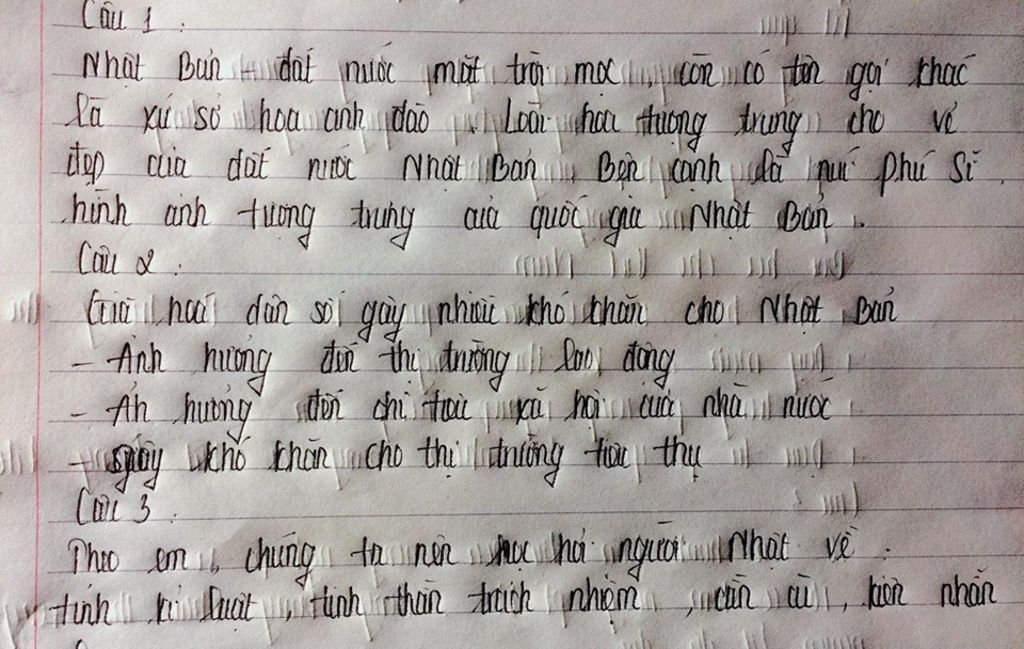 Câu 1 :
Nhật Bản - đất nước mặt trời mọc , còn có tên gọi khác
là xứ sở hoa anh đào . Loài hoa tượng trưng cho vẻ
đẹp của đất nước Nhật Bản . Bên cạnh là núi Phú Sĩ ,
hình ảnh tượng trưng của quốc gia Nhật Bản .
Câu 2 :
Già hoá dân số gây nhiều khó khăn cho Nhật Bản
- Ảnh hưởng đến thị trường lao động
- Ản hưởng đến chi trả xã hội của nhà nước
- gây khó khăn cho thị trường tiêu thụ
Câu 3 :
Theo em , chúng ta nên học hỏi người Nhật về :
tính kỉ luật , tinh thần trách nhiệm , cần cù , kiên nhẫn